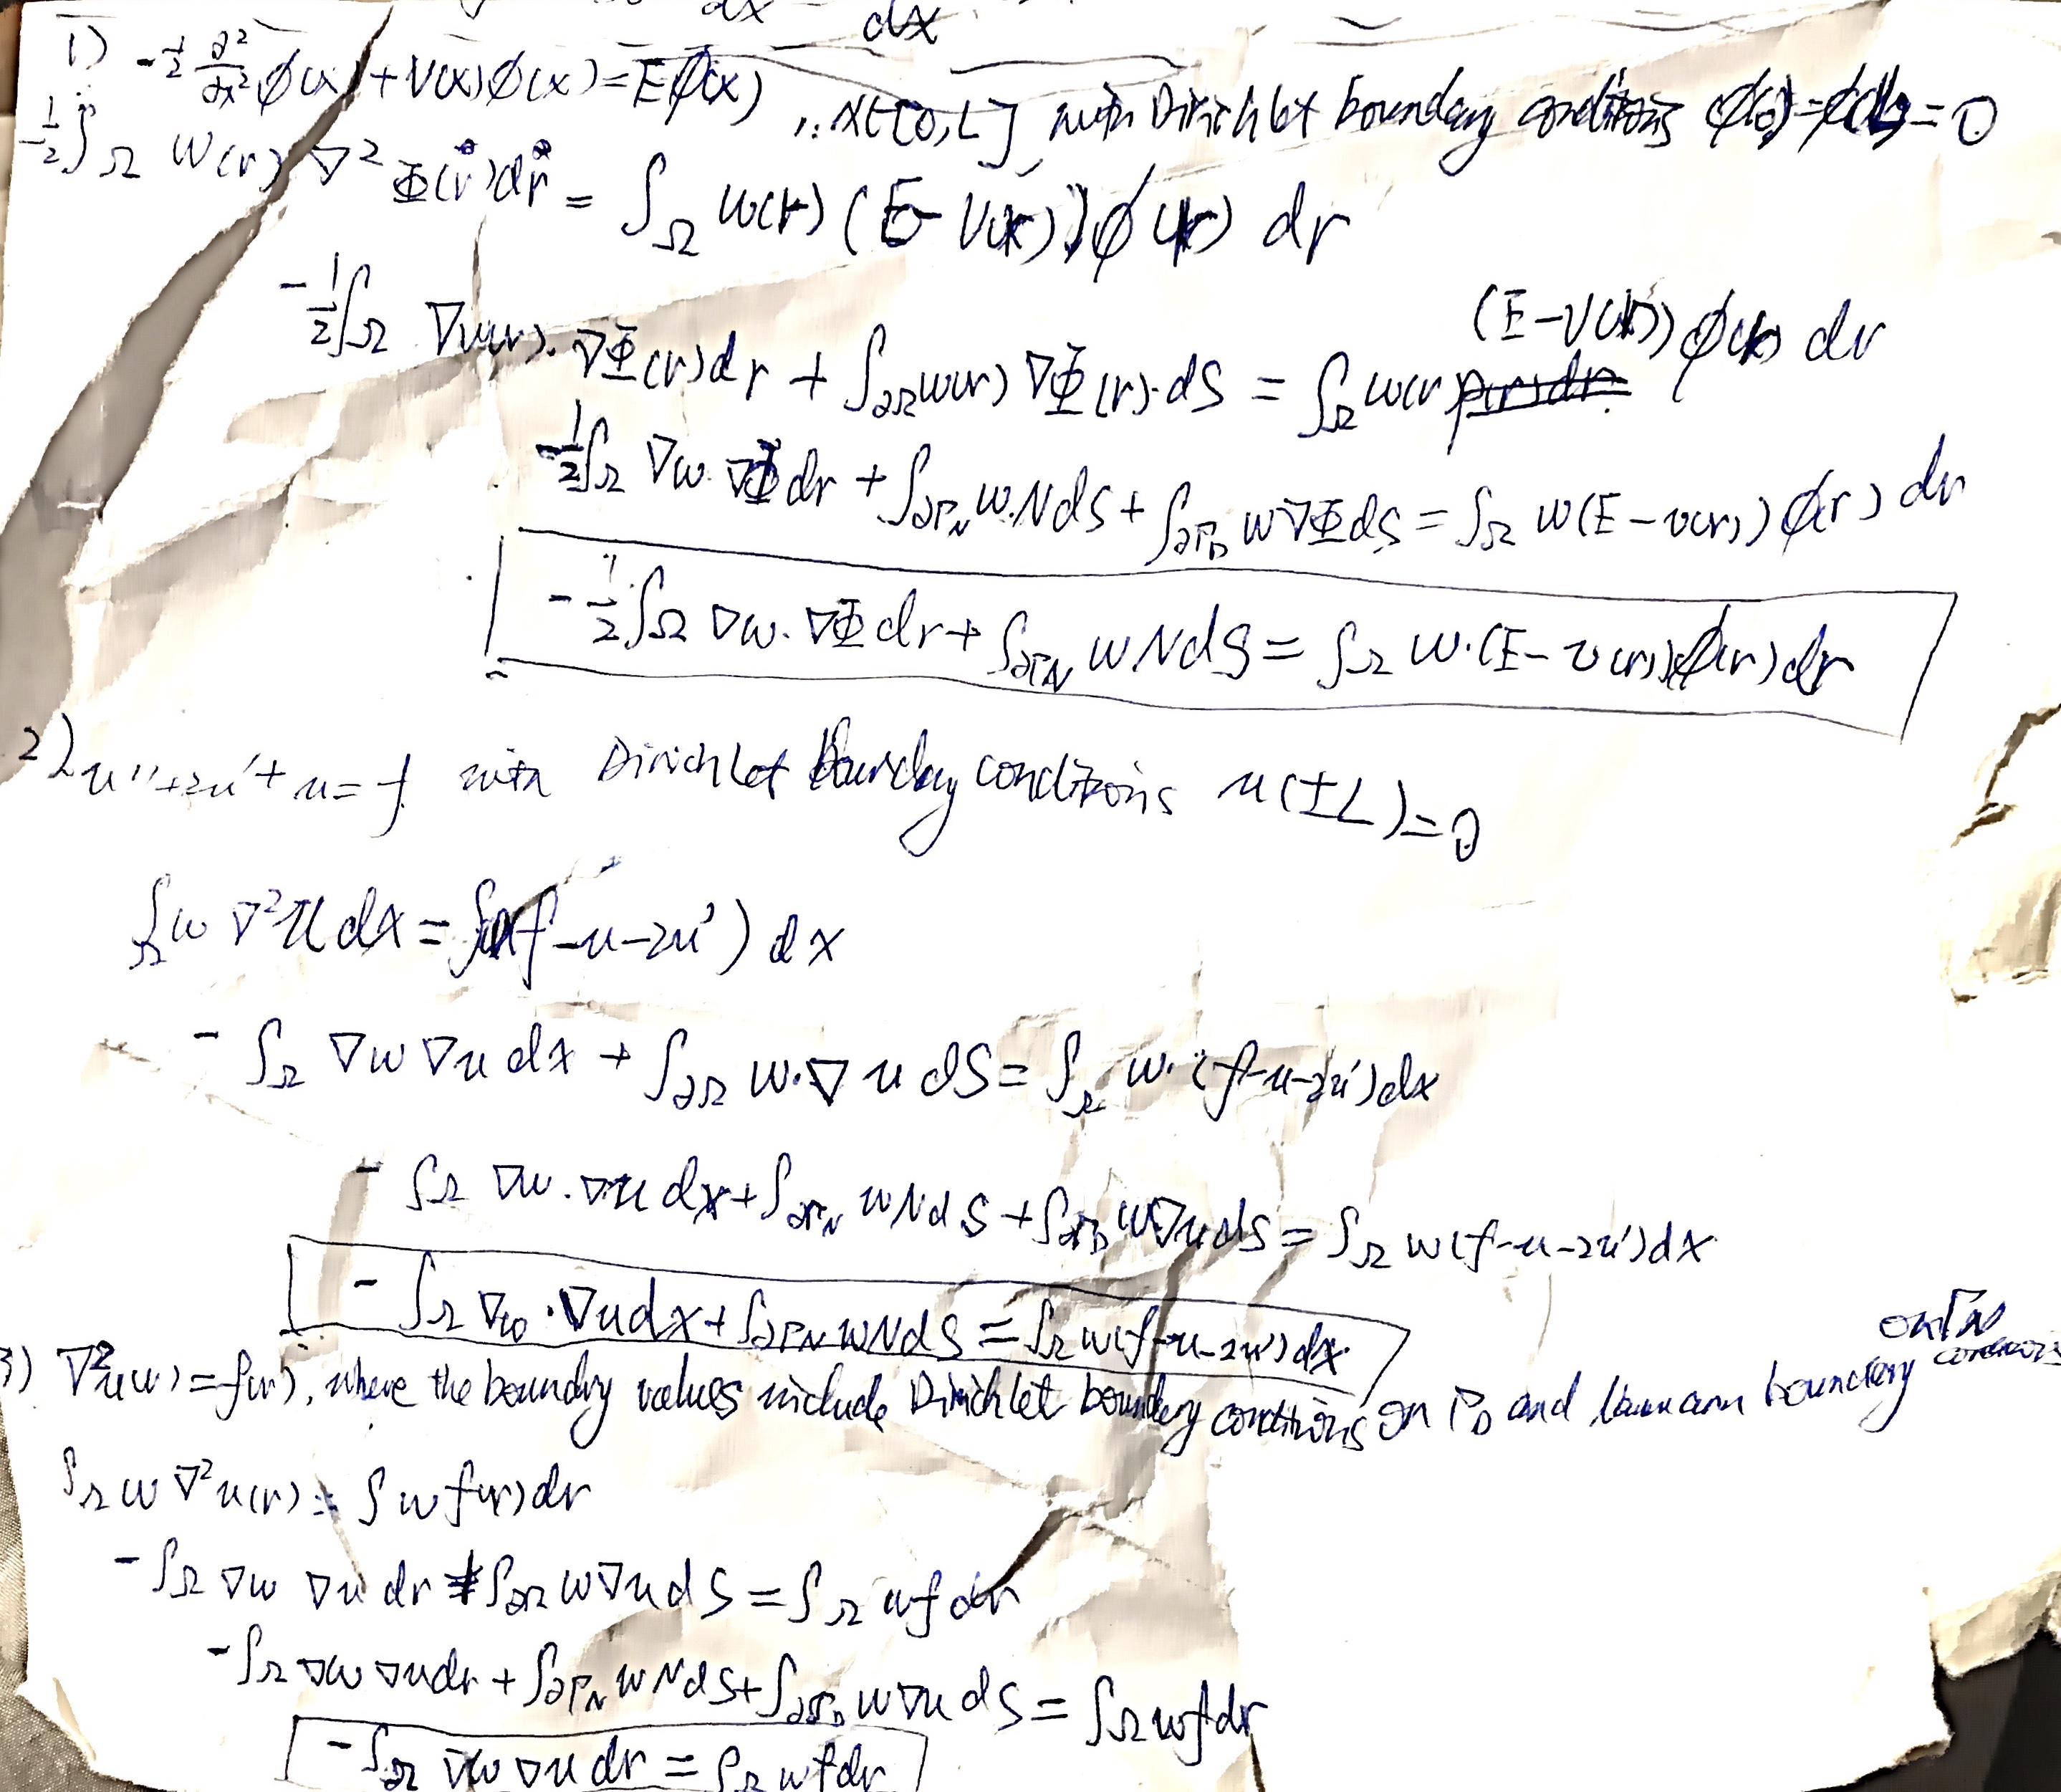 dx dx
1) -1/2 ∂²/∂x² φ(x) + V(x)φ(x) = Eφ(x) , x∈[0,L] with Dirichlet boundary conditions φ(0)=φ(L)=0
-1/2 ∫_Ω w(r) ∇² Φ(r) dr = ∫_Ω w(r) (E - V(r)) φ(r) dr
-1/2 ∫_Ω ∇w(r) · ∇Φ(r) dr + ∫_∂Ω w(r) ∇Φ(r) · dS = ∫_Ω w(r) (E - V(r)) φ(r) dr
-1/2 ∫_Ω ∇w · ∇Φ dr + ∫_∂Γ_N w·N dS + ∫_∂Γ_D w∇Φ dS = ∫_Ω w(E - v(r)) φ(r) dr
-1/2 ∫_Ω ∇w · ∇Φ dr + ∫_∂Γ_N w N dS = ∫_Ω w·(E - v(r)) φ(r) dr
2) u'' + 2u' + u = f with Dirichlet boundary conditions u(±L) = 0
∫_Ω w ∇²u dx = ∫ w(f - u - 2u') dx
- ∫_Ω ∇w ∇u dx + ∫_∂Ω w·∇u dS = ∫_Ω w·(f - u - 2u') dx
- ∫_Ω ∇w · ∇u dx + ∫_∂Γ_N w N dS + ∫_∂Γ_D w∇u dS = ∫_Ω w(f - u - 2u') dx
- ∫_Ω ∇w · ∇u dx + ∫_∂Γ_N w N dS = ∫_Ω w(f - u - 2u') dx
3) ∇²u(r) = f(r), where the boundry values include Dirichlet boundary conditions on Γ_D and boundary conditions on Γ_N
∫_Ω w ∇²u(r) = ∫ w f(r) dr
- ∫_Ω ∇w ∇u dr + ∫_∂Ω w∇u dS = ∫_Ω wf dr
- ∫_Ω ∇w ∇u dr + ∫_∂Γ_N w N dS + ∫_∂Γ_D w∇u dS = ∫_Ω wf dr
- ∫_∂Ω ∇w ∇u dr = ∫_Ω wf dr